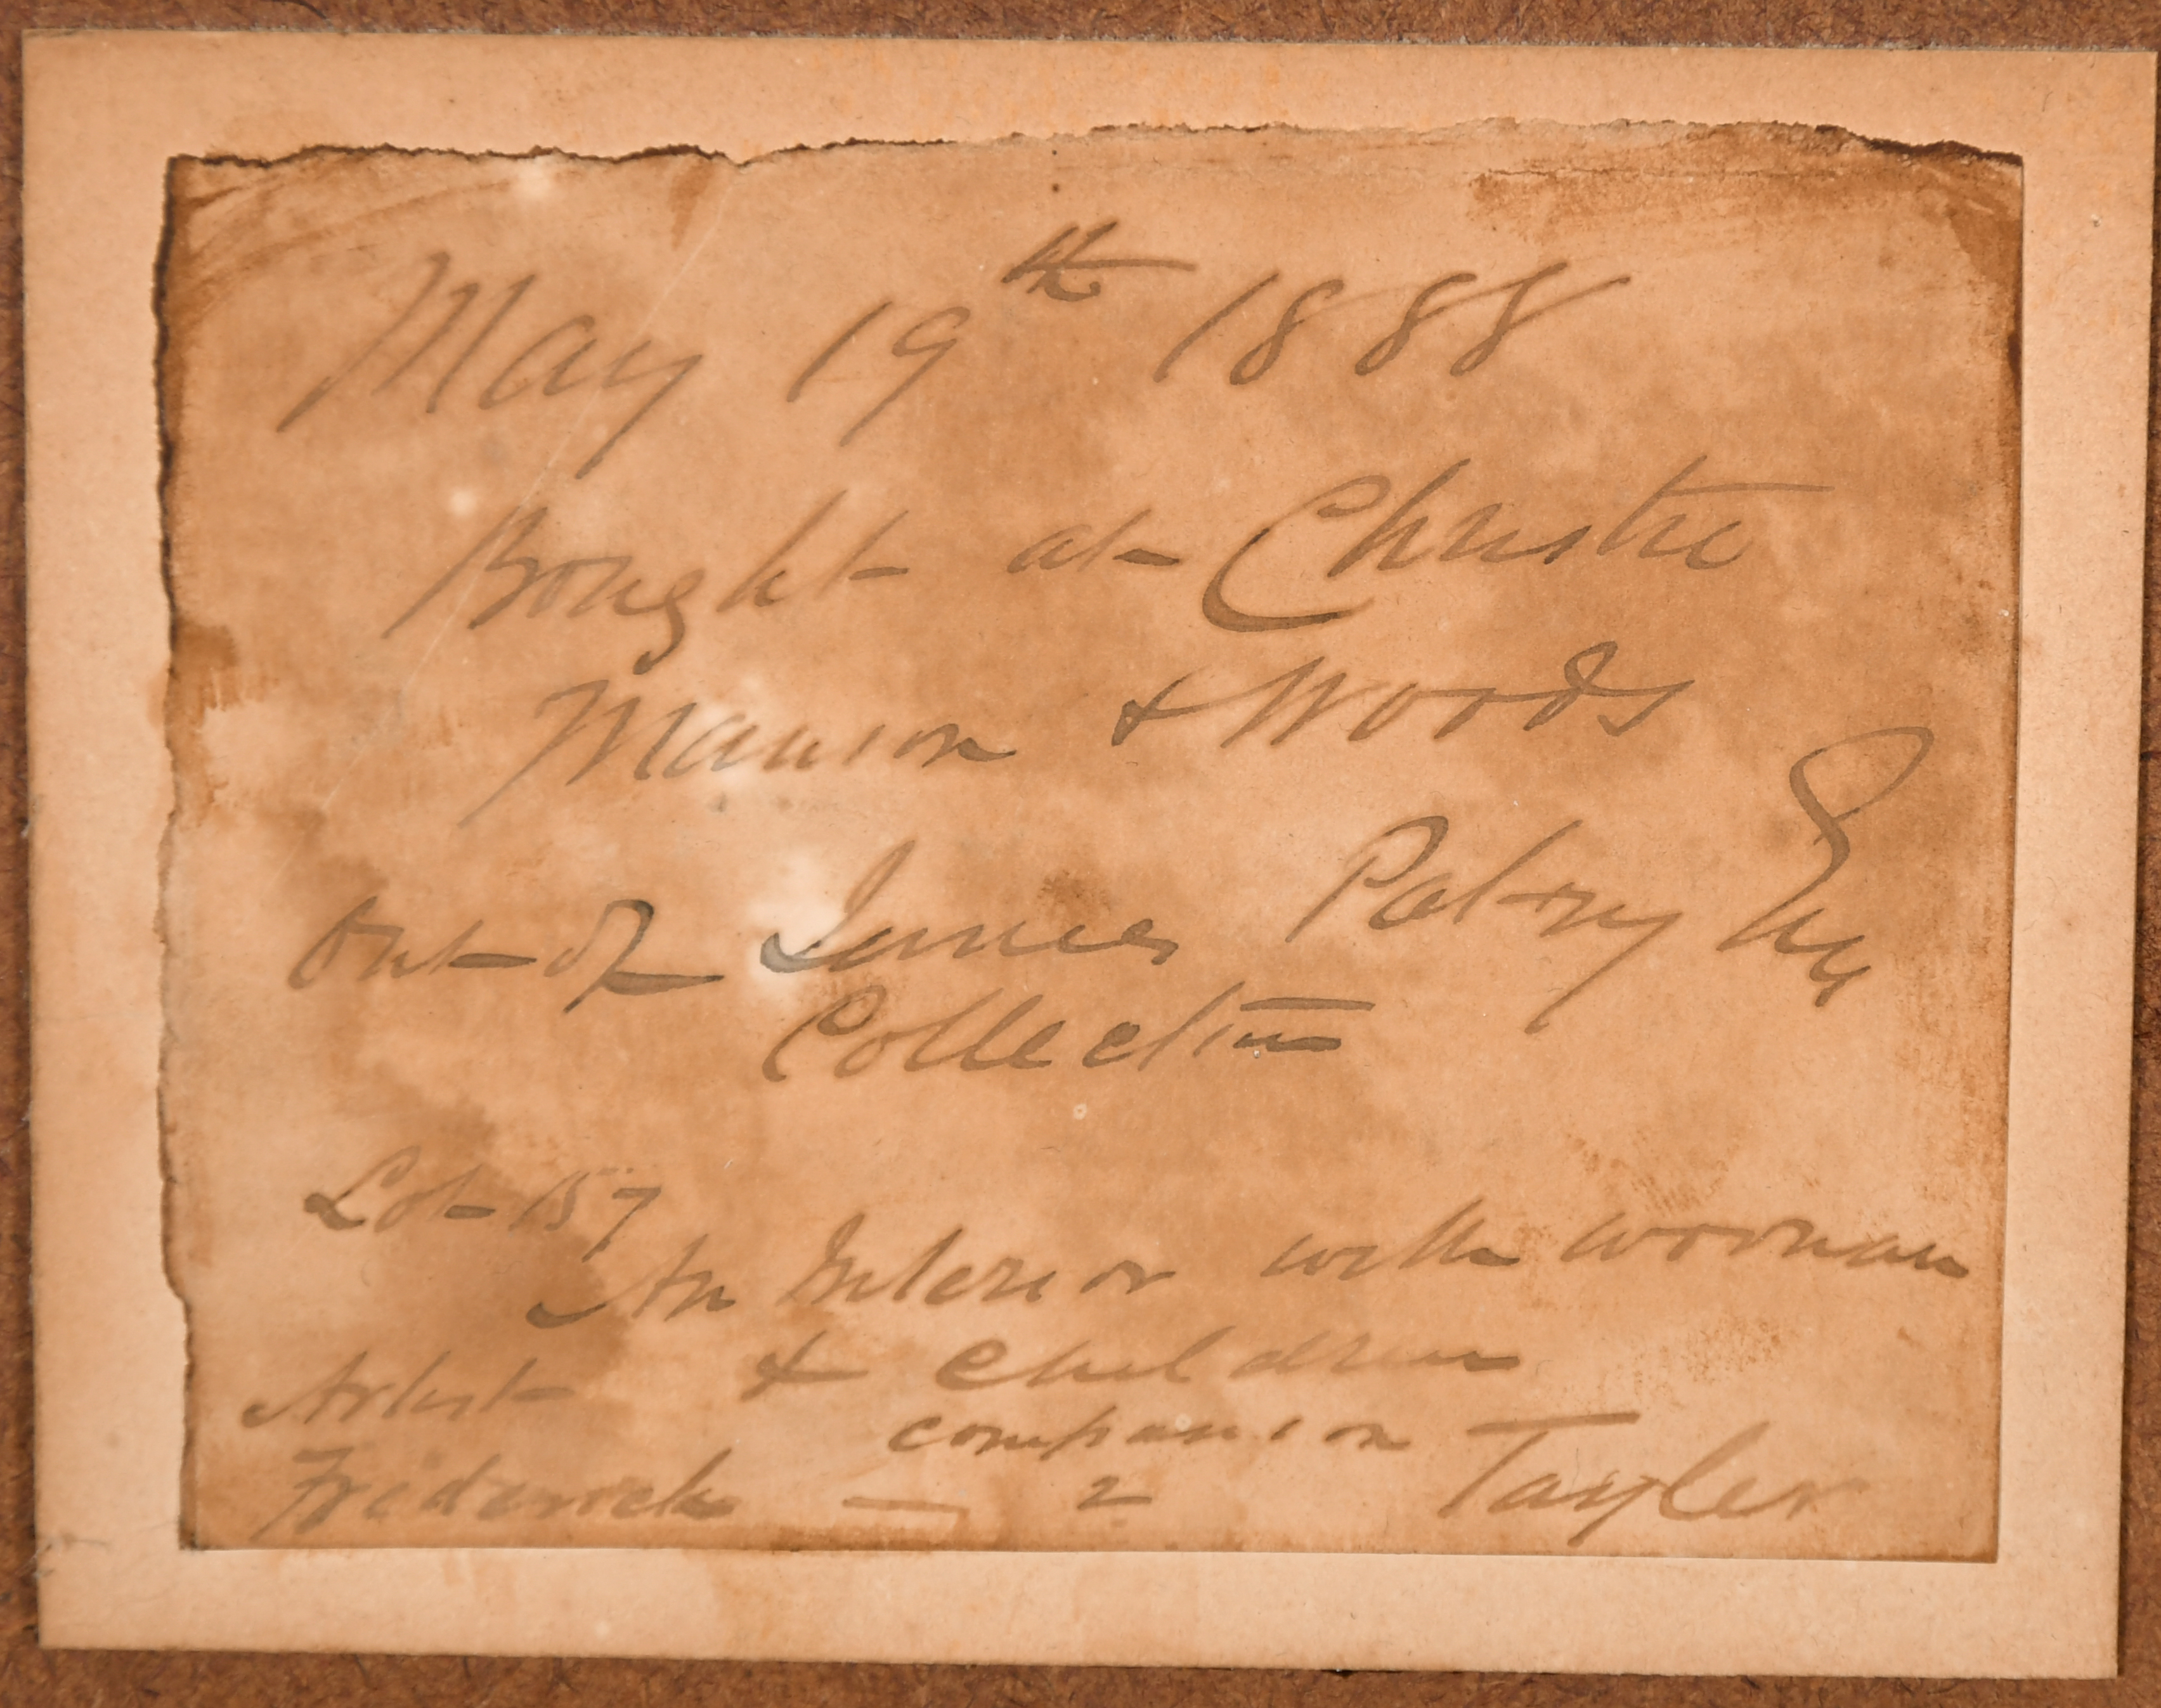 May 19th 1888
Bought at Christie
Manson & Woods
Out of James Patry Esq
Collection
Lot 157
An Interior with woman
Artist & children
companion
Frederick — 2 Tayler